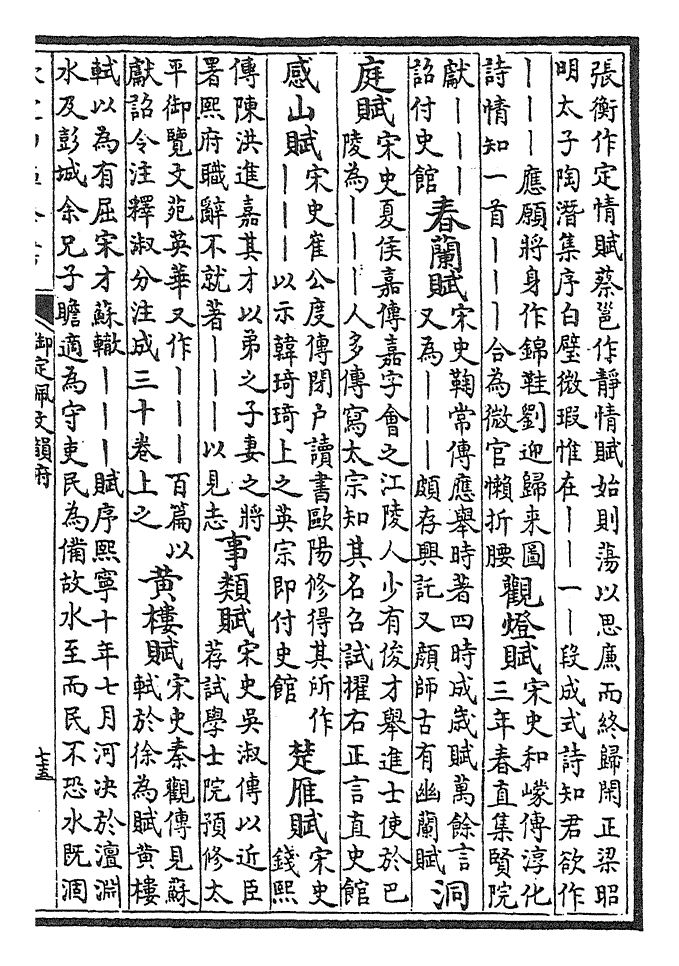 張衡作定情賦蔡邕作静情賦始則蕩以思慮而終歸閑正梁昭
明太子陶潛集序白璧微瑕惟在丨丨一丨段成式詩知君欲作
丨丨丨應願將身作錦鞋劉迎歸來圖
詩情知一首丨丨丨合為微官懶折腰
觀燈賦
宋史和㠓傳淳化
三年春直集賢院
獻丨丨丨
詔付史館
春蘭賦
宋史鞠常傳應舉時著四時成歲賦萬餘言
又為丨丨丨頗存興託又顔師古有幽蘭賦
洞
庭賦
宋史夏侯嘉傳嘉字會之江陵人少有俊才舉進士使於巴
陵為丨丨丨人多傳寫太宗知其名召試擢右正言直史館
感山賦
宋史崔公度傳閉户讀書歐陽修得其所作
丨丨丨以示韓琦琦上之英宗即付史館
楚雁賦
宋史
錢熙
傳陳洪進嘉其才以弟之子妻之將
署熙府職辭不就著丨丨丨以見志
事類賦
宋史吳淑傳以近臣
荐試學士院預修太
平御覽文苑英華又作丨丨丨百篇以
獻詔令注釋淑分注成三十卷上之
黄樓賦
宋史秦觀傳見蘇
軾於徐為賦黄樓
軾以為有屈宋才蘇轍丨丨丨賦序熙寧十年七月河决於澶淵
水及彭城余兄子瞻適為守吏民為備故水至而民不恐水既涸
御定佩文韻府